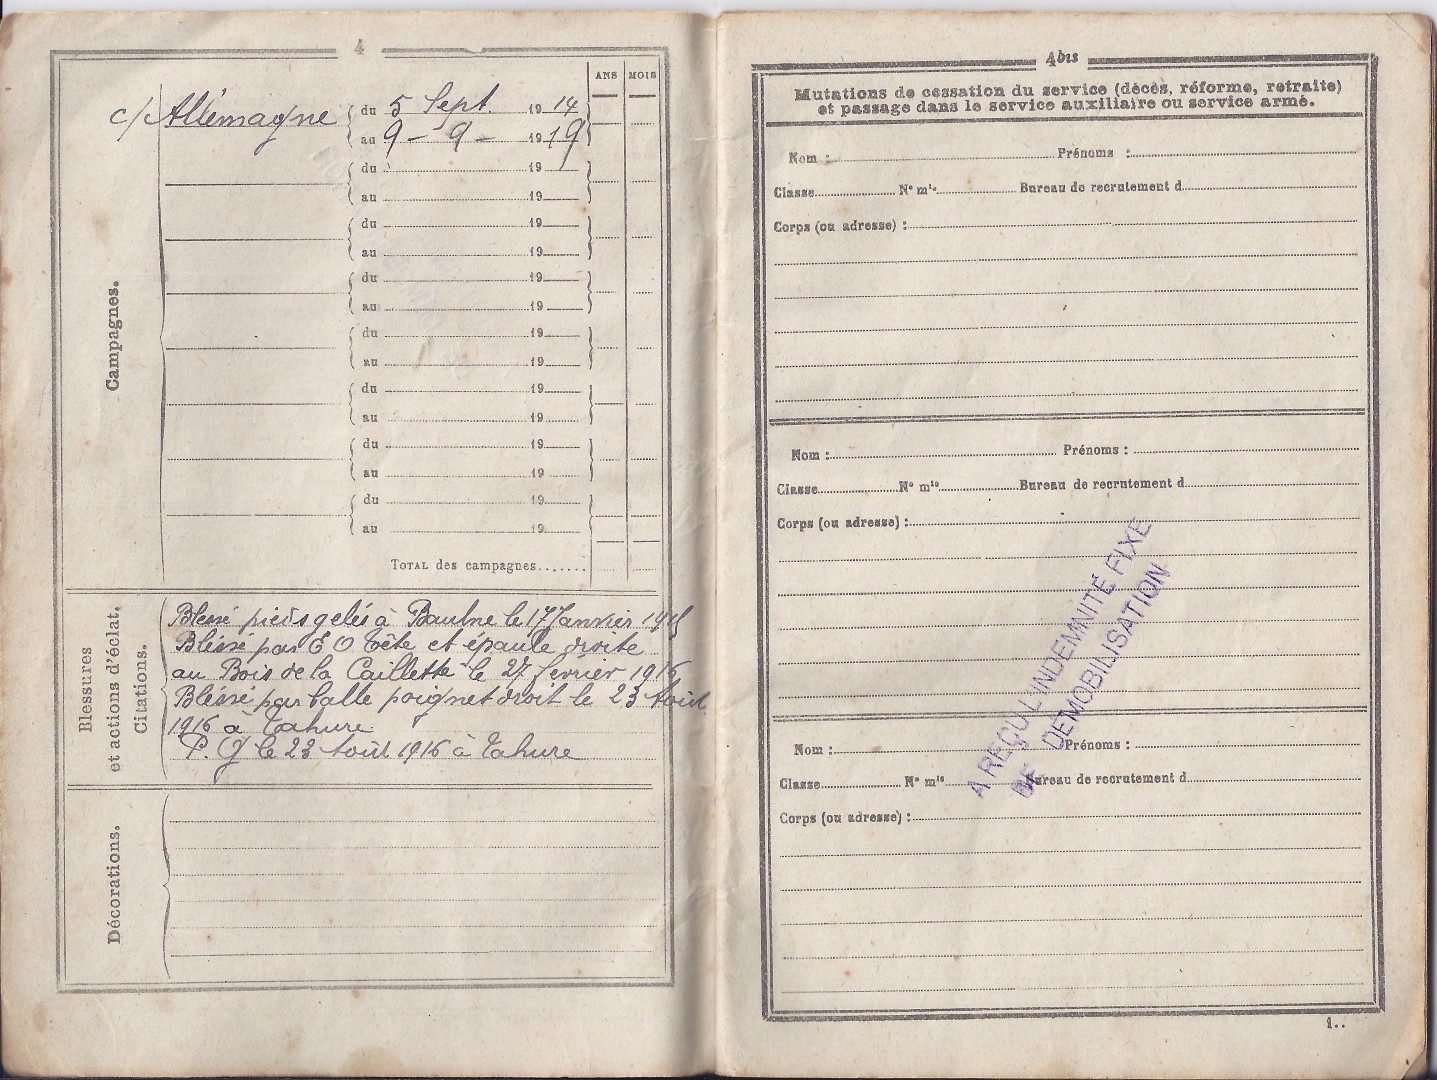 4
ANS MOIS
c/ Allemagne du 5 Sept. 1914
au 9 - 9 - 1919
du 19
au 19
du 19
au 19
du 19
au 19
du 19
au 19
du 19
au 19
du 19
au 19
du 19
au 19
Campagnes.
TOTAL des campagnes.......
Blessures
et actions d'éclat.
Citations.
Blessé pieds gelés à Baulne le 17 Janvier 1915
Bléssé par E O tête et épaule droite
au Bois de la Caillette le 27 fevrier 1916
Bléssé par balle poignet droit le 23 Août
1916 à Tahure
P. G le 23 Août 1916 à Tahure
Décorations.
4bis
Mutations de cessation du service (décès, réforme, retraite)
et passage dans le service auxiliaire ou service armé.
Nom : Prénoms :
Classe N° mle Bureau de recrutement d
Corps (ou adresse) :
Nom : Prénoms :
Classe N° mle Bureau de recrutement d
Corps (ou adresse) :
A REÇU L'INDEMNITÉ FIXE
DE DEMOBILISATION
Nom : Prénoms :
Classe N° mle Bureau de recrutement d
Corps (ou adresse) :
1..